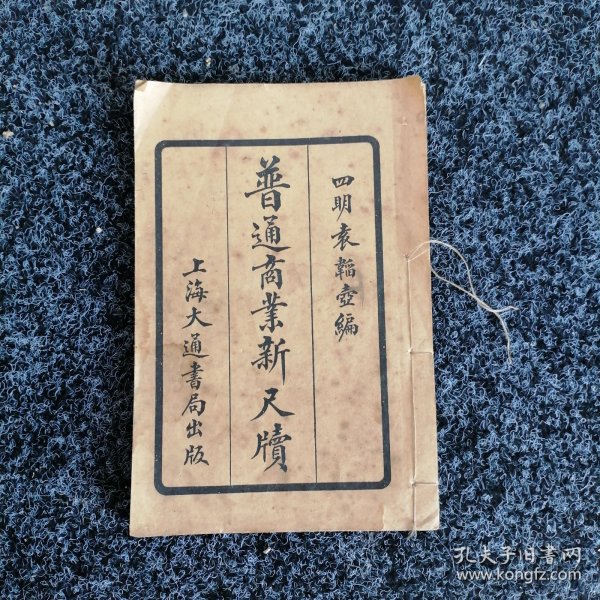 四明袁韜壺編
普通商業新尺牘
上海大通書局出版
孔夫子旧书网
www.kongfz.com